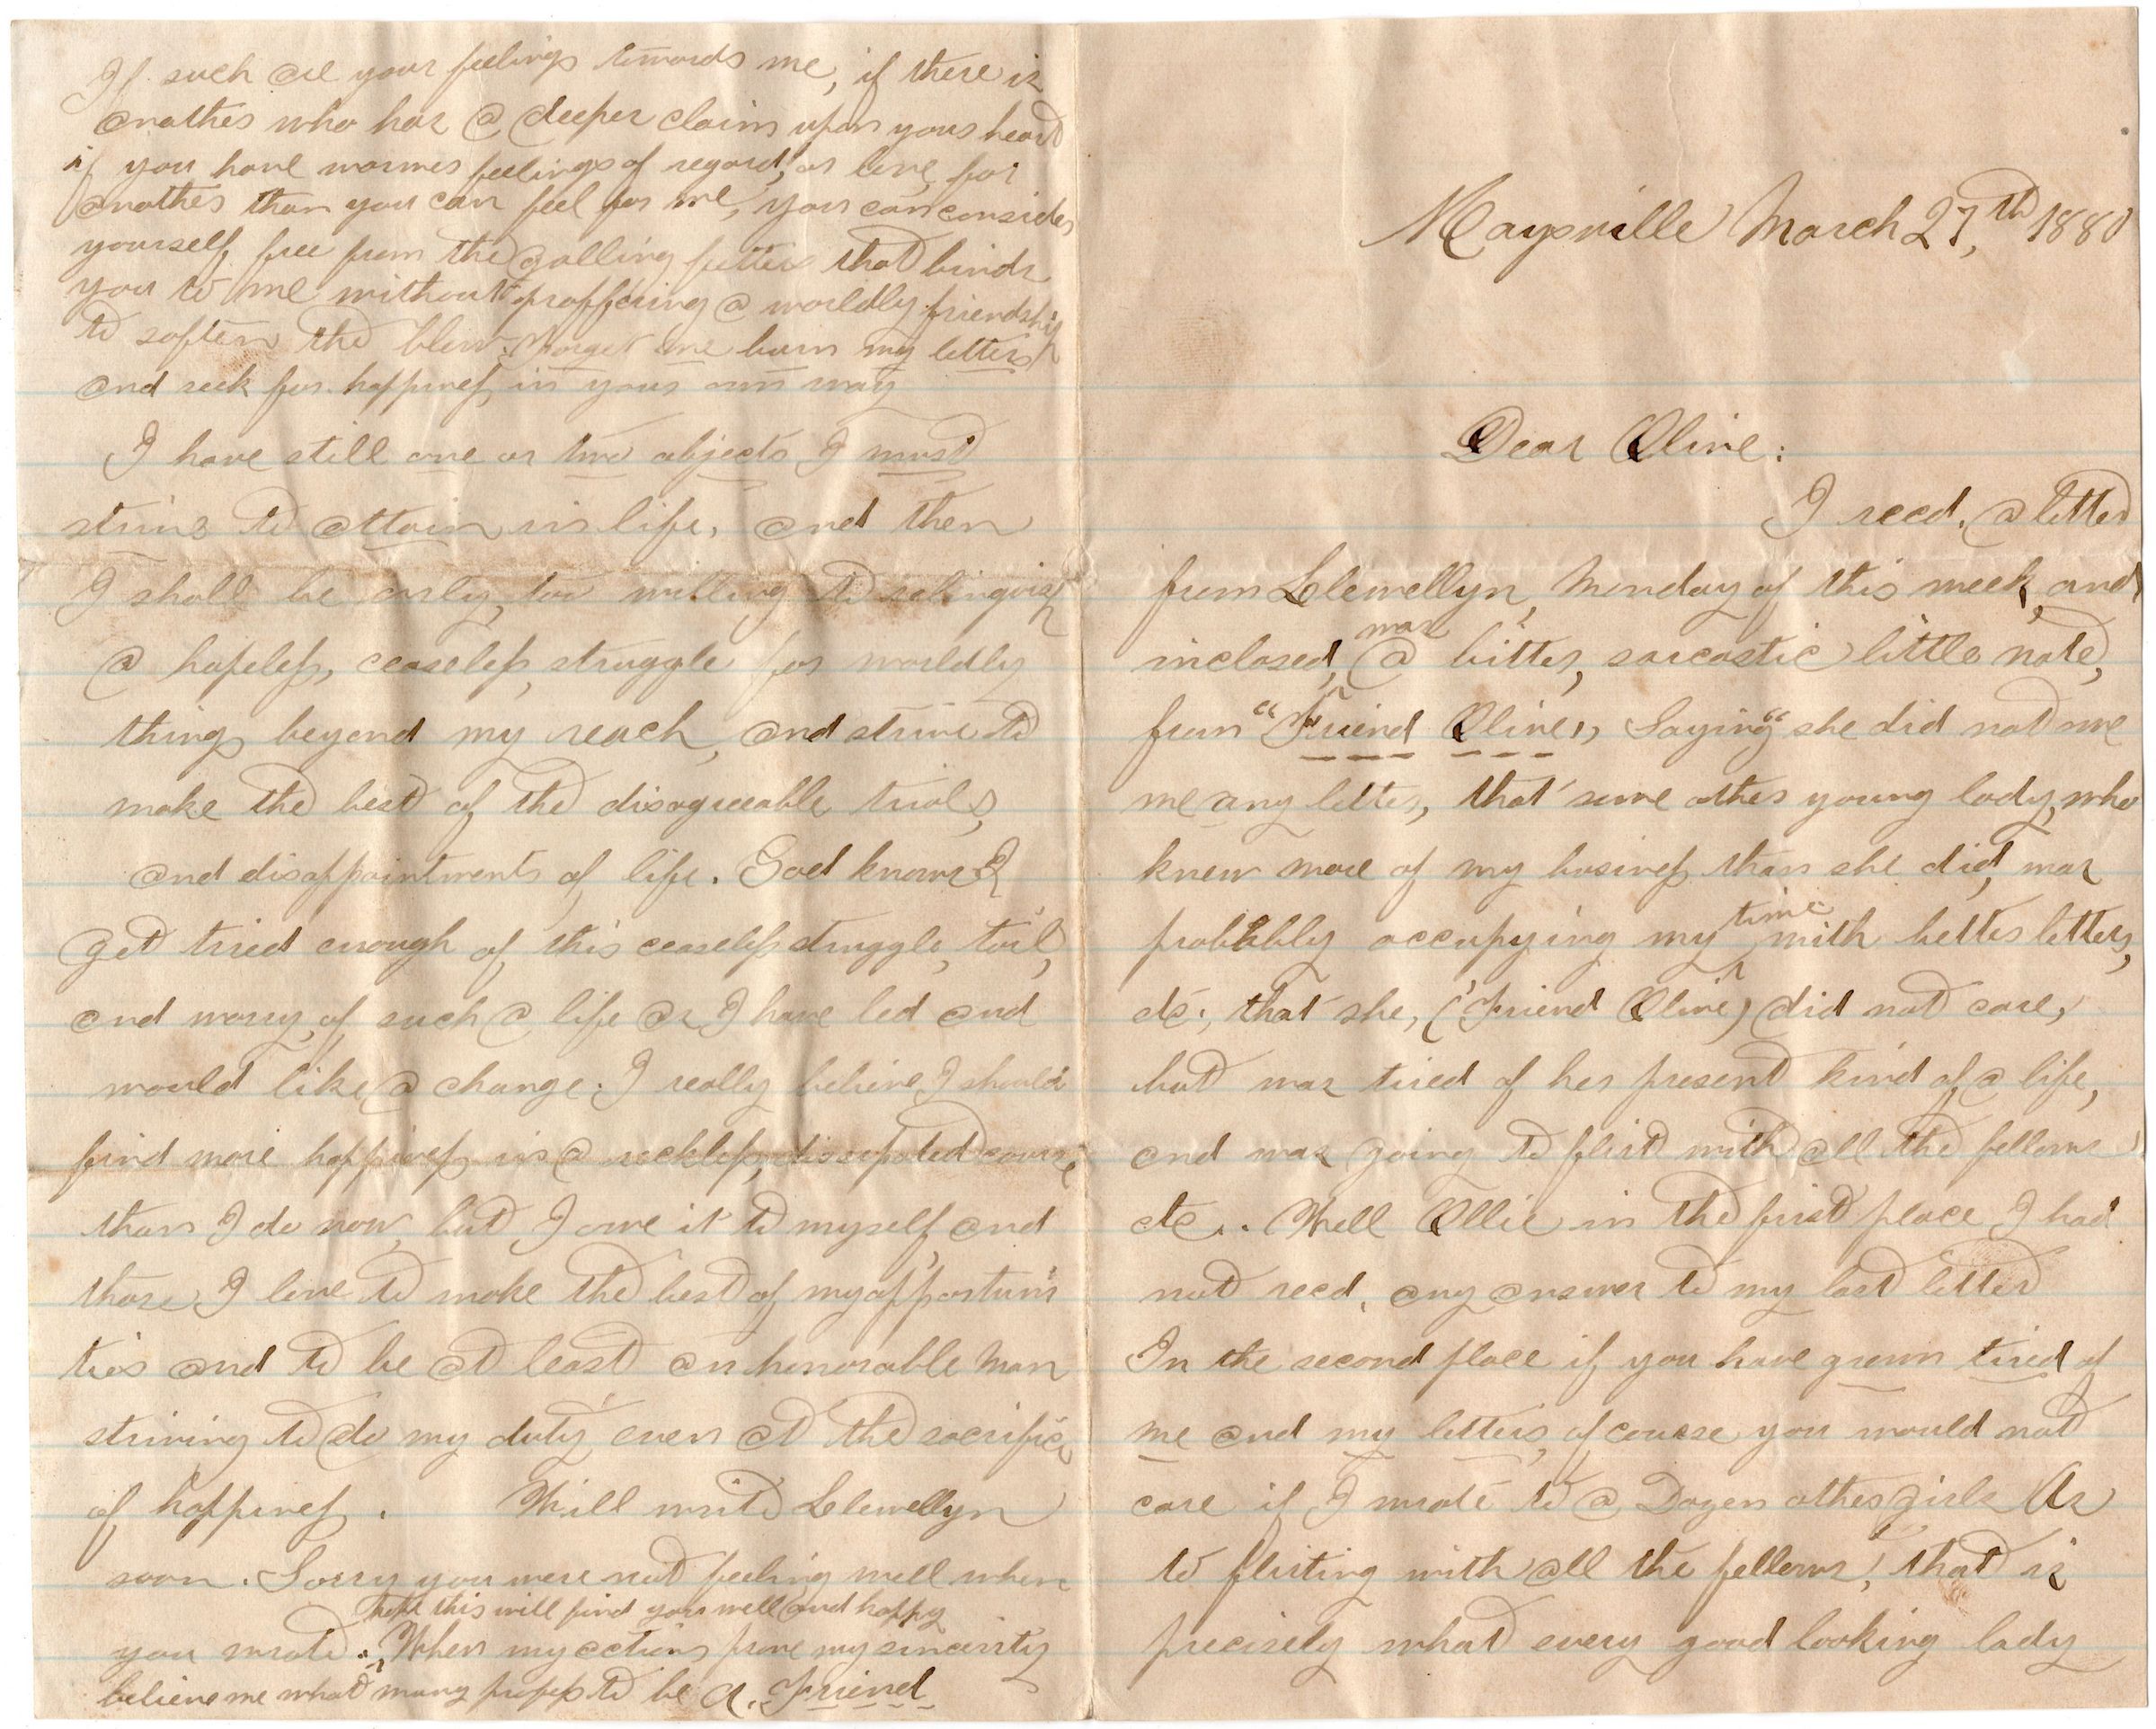 Maysville March 27,th 1880
Dear Olive:
I recd. a letter
from Llewellyn, Monday of this week, and
was
inclosed, a bitter, sarcastic little note,
from "Friend Olive,, Saying "she did not owe
me any letter, that some other young lady, who
knew more of my business than she did, was
time
probbbly occupying my with better letters,
etc., that she, (Friend Olive) did not care,
but was tired of her present kind of a life,
and was going to flirt with all the fellows
etc.. Well Ollie in the first place I had
not recd. any answer to my last letter
In the second place if you have grown tired of
me and my letters, of course you would not
care if I wrote to a Dozen other girls As
to flirting with all the fellows, that is
precisely what every good looking lady
If such are your feelings towards me, if there is
another who has a deeper claim upon your heart
if you have warmer feelings of regard, or love, for
another than you can feel for me, you can consider
yourself, free from the galling fetters that binds
you to me without proffering a worldly friendship
to soften the blow. Forget me burn my letters
and seek for happiness in your own way
I have still one or two objects I must
strive to attain in life, and then
I shall be only too willing to relinquish
a hopeless, ceaseless, struggle for worldly
things beyond my reach, and strive to
make the best of the disagreeable trials,
and disappointments of life. God knows I
get tired enough of this ceaseless struggle, toil,
and worry, of such a life as I have led and
would like a change. I really believe I should
find more happiness in a reckless, dissipated course
than I do now, but I owe it to myself, and
those I love to make the best of my opportuni
ties and to be at least an honorable man
striving to do my duty, even at the sacrifice
of happiness. Will write Llewellyn
soon. Sorry you were not feeling well when
hope this will find you well and happy
you wrote. When my actions prove my sincerity
believe me what many profess to be a. Friend